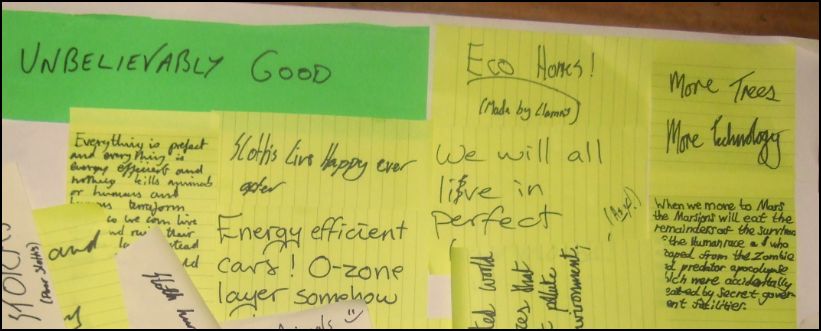 UNBELIEVABLY GOOD
Eco Homes!
(Made by Llamas)
More Trees
More Technology
Everything is prefect
and everything is
energy efficient and
nothing kills animals
or humans and
terraform
so we can live
and ruin their
instead
Sloths live Happy ever
after
We will all
live in
perfect
Energy efficient
cars! O-zone
layer somehow
When we move to Mars
the Martians will eat the
remainders of the survivors
of the Human race and who
escaped from the Zombie
predator apocalypse
which were accidentally
by secret gover-
ent facilities.
and
Sloth
world
that
pollute
environment,